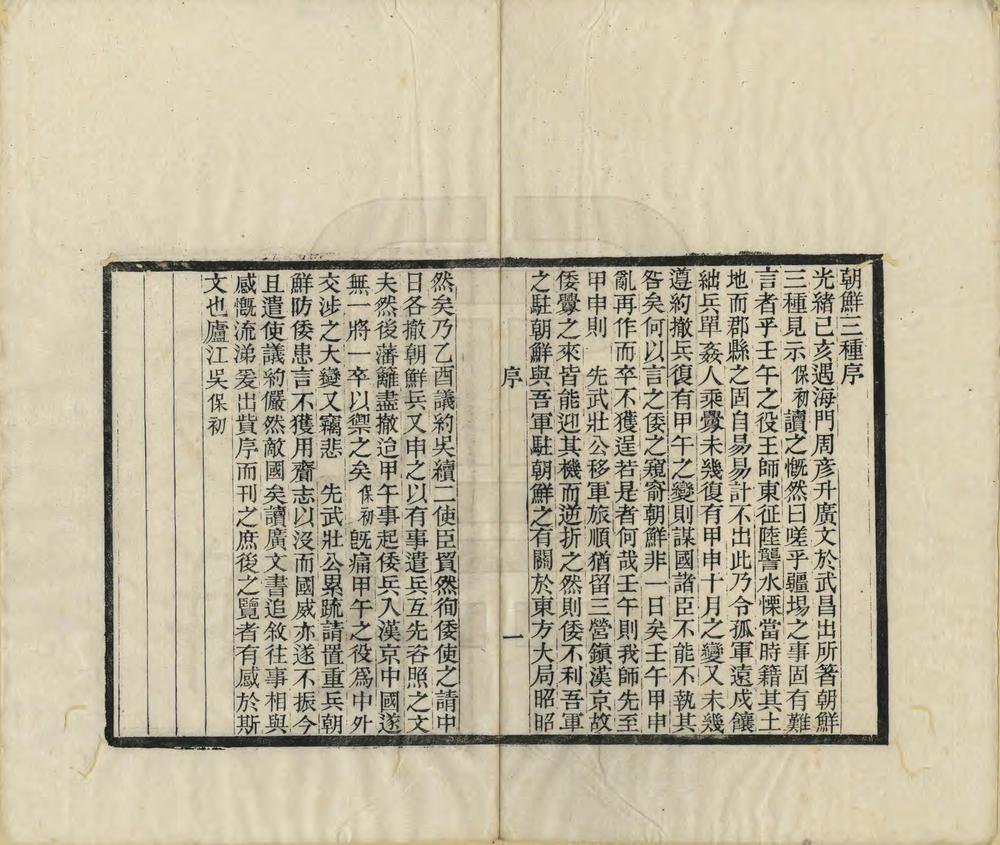 朝鮮三種序
光緒己亥遇海門周彥升廣文於武昌出所著朝鮮
三種見示保初讀之慨然曰嗟乎疆埸之事固有難
言者乎壬午之役王師東征陸讋水慄當時籍其土
地而郡縣之固自易易計不出此乃令孤軍遠戍饟
絀兵單姦人乘釁未幾復有甲申十月之變又未幾
遵約撤兵復有甲午之變則謀國諸臣不能不執其
咎矣何以言之倭之窺裔朝鮮非一日矣壬午甲申
亂再作而卒不獲逞若是者何哉壬午則我師先至
甲申則 先武壯公移軍旅順猶留三營鎮漢京故
倭釁之來皆能迎其機而逆折之然則倭不利吾軍
之駐朝鮮與吾軍駐朝鮮之有關於東方大局昭昭
序
一
然矣乃乙酉議約吳續二使臣貿然徇倭使之請中
日各撤朝鮮兵又申之以有事遣兵互先咨照之文
夫然後藩籬盡撤迨甲午事起倭兵入漢京中國遂
無一將一卒以禦之矣保初旣痛甲午之役爲中外
交涉之大變又竊悲 先武壯公累疏請置重兵朝
鮮防倭患言不獲用齎志以沒而國威亦遂不振今
且遣使議約儼然敵國矣讀廣文書追敘往事相與
感慨流涕爰出貲序而刊之庶後之覽者有感於斯
文也廬江吳保初